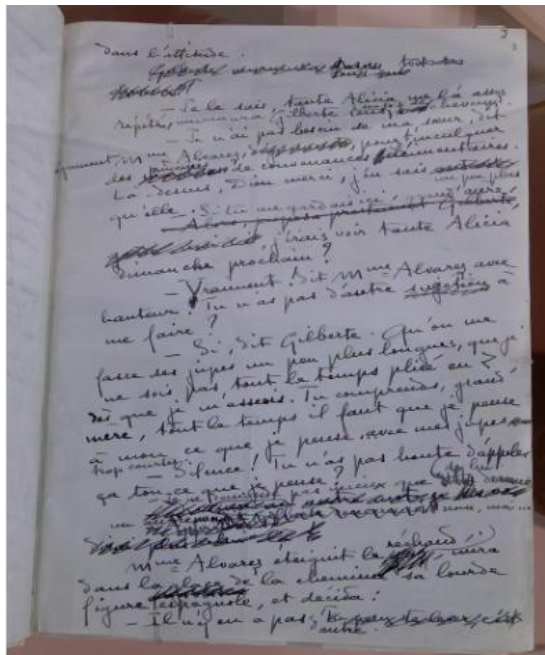 3
dans l'attitude.
— Je le sais, tante Alicia me l'a assez
répété, murmura Gilberte
— Je n'ai pas besoin de ma sœur, dit
aigrement Mme Alvarez, pour t'inculquer
les de convenances élémentaires.
Là-dessus, Dieu merci, j'en sais un peu plus
qu'elle. Si tu me gardais ici, grand'mère,
— Alors, Gilberte,
j'irais voir tante Alicia
dimanche prochain ?
— Vraiment ! dit Mme Alvarez avec
hauteur. Tu n'as pas d'autre sugestion à
me faire ?
— Si, dit Gilberte. Qu'on me
fasse des jupes un peu plus longues, que je
ne sois pas tout le temps pliée en Z
dès que je m'assois. Tu comprends, grand'
mère, tout le temps il faut que je pense
à mon ce que je pense, avec mes jupes
trop courtes.
— Silence ! Tu n'as pas honte d'appeler
ça ton ce que je pense ?
— Je pas mieux que de lui donner
un autre nom, moi...
Mme Alvarez éteignit le réchaud, mira
dans la glace de la cheminée sa lourde
figure espagnole, et décida :
— Il n'y en a pas d'autre.